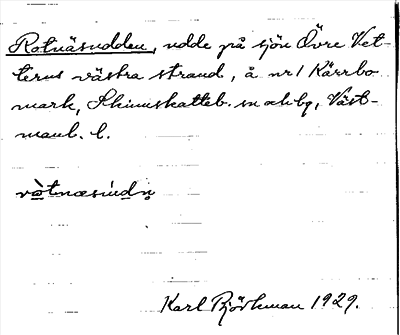 Rotnäsudden, udde på sjön Övre Vet-
terns västra strand, å nr 1 Kärrbo
mark, Skinnskatteb. sn och bg, Väst-
manl. l.
ròtnæsúdn̥
Karl Björkman 1929.